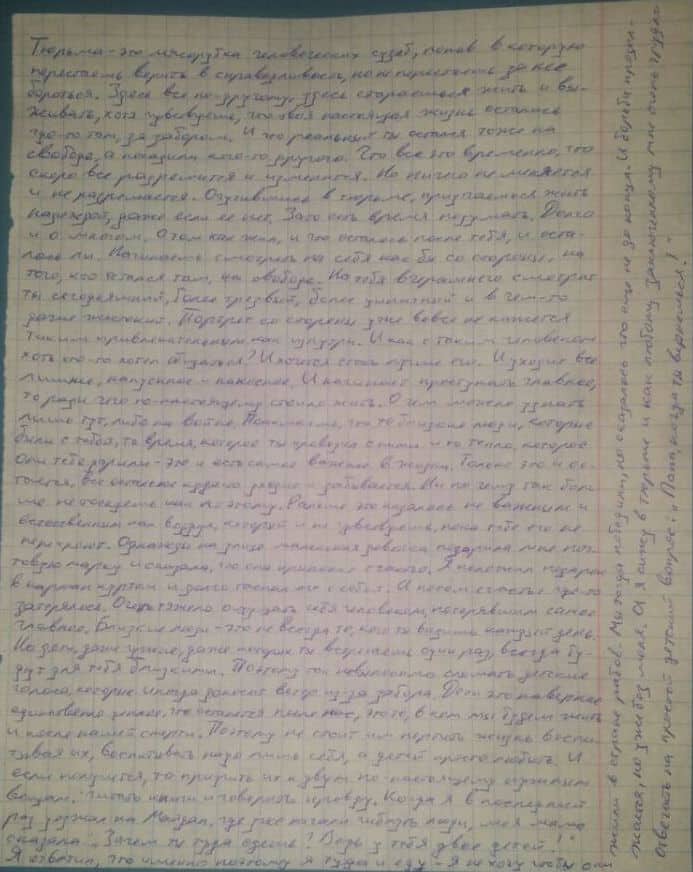 Тюрьма - это мясорубка человеческих судеб, попав в которую
перестаешь верить в справедливость, но не перестаешь за нее
бороться. Здесь все по-другому, здесь стараешься жить и вы-
живать, хотя чувствуешь, что твоя настоящая жизнь осталась
где-то там, за забором. И что реальный ты остался тоже на
свободе, а посадили кого-то другого. Что все это временно, что
скоро все разрешится и изменится. Но ничего не меняется
и не разрешается. Очутившись в тюрьме, приучаешься жить
надеждой, даже если ее нет. Зато есть время подумать. Долго
и о многом. О том как жил, и что осталось после тебя, и оста-
лось ли. Начинаешь смотреть на себя как бы со стороны, на
того, кто остался там, на свободе. На тебя вчерашнего смотрит
ты сегодняшний, более трезвый, более циничный и в чем-то
даже жестокий. Портрет со стороны уже вовсе не кажется
таким привлекательным как изнутри. И как с таким человеком
хоть кто-то хотел общаться? И хочется стать лучше его. И уходит все
лишнее, напускное и наносное. И начинает проступать главное,
то ради чего по-настоящему стоило жить. О чем можно узнать
лишь тут, либо на войне. Понимаешь, что те близкие люди, которые
были с тобой, то время, которое ты проводил с ними и то тепло, которое
они тебе дарили - это и есть самое важное в жизни. Только это и ос-
тается, все остальное уходит и забывается. Ни по чему так боль-
ше не тоскуешь как по этому. Раньше это казалось не важным и
естественным как воздух, который и не чувствуешь, пока тебе его не
перекроют. Однажды на улице маленькая девочка подарила мне поч-
товую марку и сказала, что она приносит счастье. Я положил подарок
в карман куртки и долго таскал его с собой. А потом счастье где-то
затерялось. Очень тяжело ощущать себя человеком, потерявшим самое
главное. Близкие люди - это не всегда те, кого ты видишь каждый день.
Но дети, даже чужие, даже которых ты встречаешь один раз, всегда бу-
дут для тебя близкими. Поэтому так невыносимо слышать детские
голоса, которые иногда доносит ветер из-за забора. Дети это наверное
единственно ценное, что останется после нас, это те, в ком мы будем жить
и после нашей смерти. Поэтому не стоит им портить жизнь воспи-
тывая их, воспитывать надо лишь себя, а детей просто любить. И
если получится, то приучить их к двум по-настоящему нужным
вещам: читать книги и говорить правду. Когда я в последний
раз уезжал на Майдан, где уже начали гибнуть люди, моя мама
сказала: "Зачем ты туда едешь? Ведь у тебя двое детей!"
Я ответил, что именно поэтому я туда и еду - я не хочу чтобы они
жили в стране рабов. Мы тогда победили, но оказалось что еще не до конца. И борьба продол-
жается, но уже без меня. А я сижу в тюрьме и как любому заключенному мне очень трудно
отвечать на простой детский вопрос: "Папа, когда ты вернешься?"